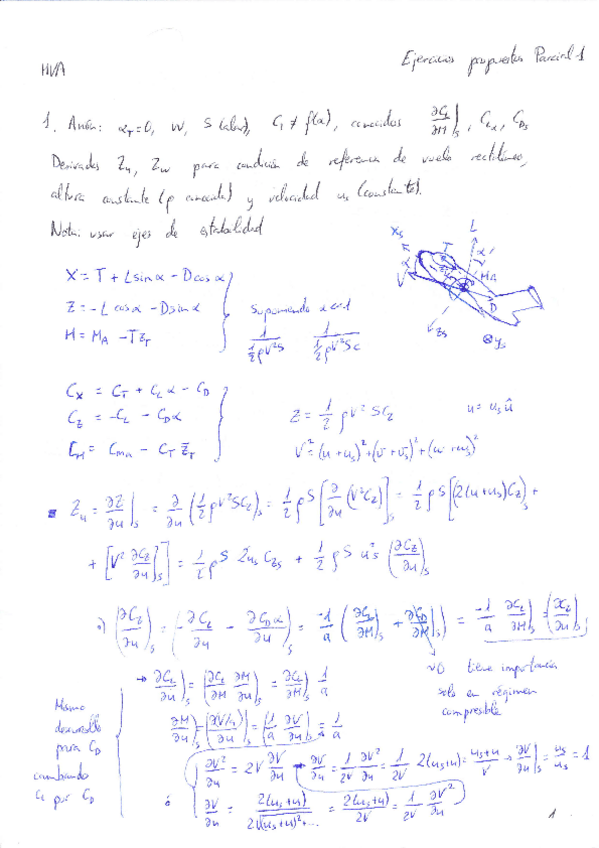 Ejercicios propuestos Parcial 1
MVA
1. Avión: α_T=0, W, S (alar), C_T ≠ f(α), conocidos ∂C_L/∂M|_s, C_Lα, C_Ds
Derivadas Z_u, Z_w para condición de referencia de vuelo rectilíneo,
altura constante (ρ constante) y velocidad u_s (constante).
Nota: usar ejes de estabilidad
X = T + L sin α - D cos α
Z = -L cos α - D sin α
M = M_A - T z_T
Suponiendo α<<1
1/(½ρV²S) 1/(½ρV²Sc)
X_s T L α V M_A D Z_s y_s
C_X = C_T + C_L α - C_D
C_Z = -C_L - C_D α
C_M = C_MA - C_T z̄_T
Z = ½ ρV² S C_Z
u = u_s û
V² = (u+u_s)² + (v+v_s)² + (w+w_s)²
Z_u = ∂Z/∂u|_s = ∂/∂u (½ρV²SC_Z)_s = ½ρS [∂/∂u (V²C_Z)]_s = ½ρS [(2(u+u_s)C_Z)_s +
+ [V² ∂C_Z/∂u]_s] = ½ρS 2u_s C_Zs + ½ρS u_s² (∂C_Z/∂u)_s
(∂C_Z/∂u)_s = (-∂C_L/∂u - ∂C_D α/∂u)_s = -1/a (∂C_L/∂M|_s + ∂C_D/∂M|_s) = -1/a ∂C_L/∂M|_s = (∂C_Z/∂u)_s
→ ∂C_L/∂u|_s = (∂C_L/∂M ∂M/∂u)_s = ∂C_L/∂M|_s 1/a
tiene importancia
solo en régimen
compresible
∂M/∂u|_s = ∂(V/a)/∂u|_s = (1/a ∂V/∂u)_s = 1/a
Mismo
desarrollo
para C_D
cambiando
C_L por C_D
∂V²/∂u = 2V ∂V/∂u → ∂V/∂u = 1/2V ∂V²/∂u = 1/2V 2(u_s+u) = (u_s+u)/V → ∂V/∂u|_s = u_s/u_s = 1
ó ∂V/∂u = 2(u_s+u)/(2√((u_s+u)²+...)) = 2(u_s+u)/2V = 1/2V ∂V²/∂u
1